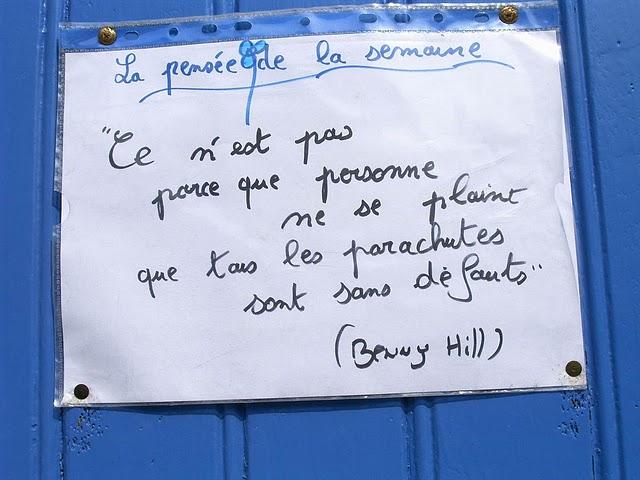 La pensée de la semaine
"Ce n'est pas
parce que personne
ne se plaint
que tous les parachutes
sont sans défauts"
(Benny Hill)